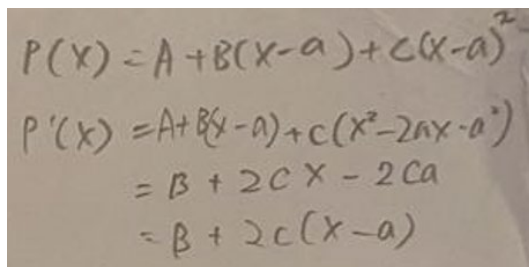 P(x) = A + B(x-a) + C(x-a)²
P'(x) = A + B(x-a) + C(x²-2ax-a²)
= B + 2Cx - 2Ca
= B + 2C(x-a)